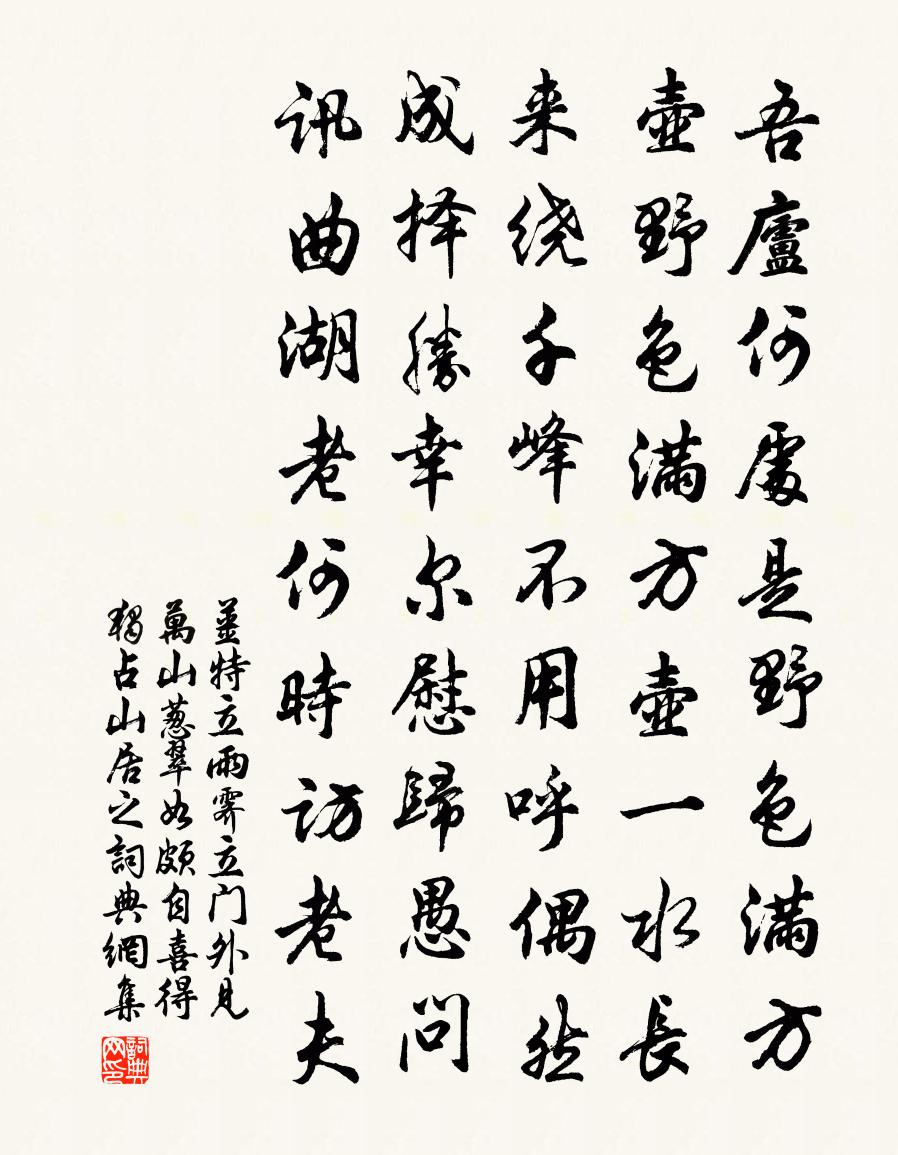 吾廬何處是野色滿方
壺野色滿方壺一水長
来绕千峰不用呼偶然
成择勝幸尔慰歸愚問
訊曲湖老何時訪老夫
薑特立雨霽立门外見
萬山葱翠如頗自喜得
獨占山居之詞典網集
詞典网印